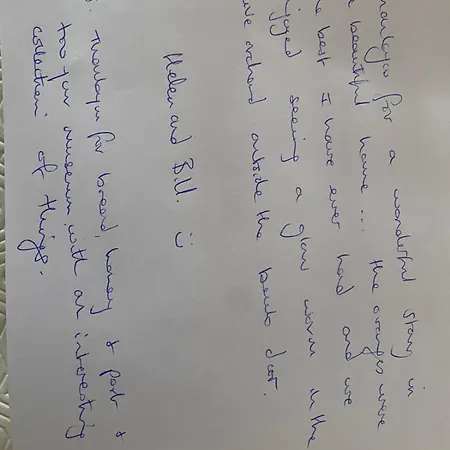 hankyou for a wonderful stay in
beautiful home... the oranges were
best I have ever had and we
njoyed seeing a glow worm in the
orchard outside the back door.
Helen and Bill. :)
S. Thankyou for bread, honey & port &
too your museum with an interesting
collection of things.